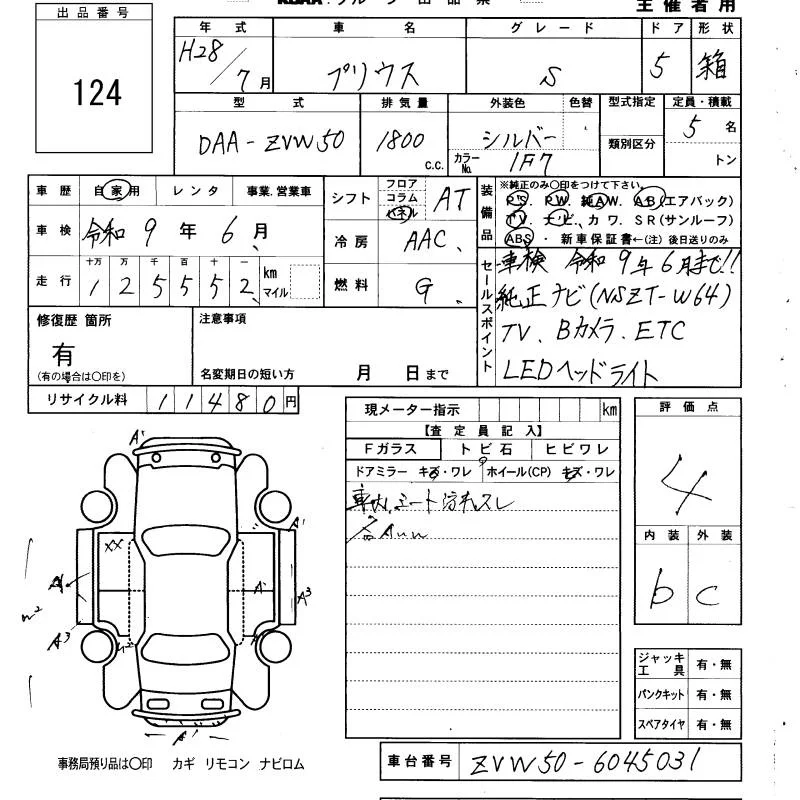 出品番号
124
主催者用
年式 車名 グレード ドア 形状
H28/7月 プリウス S 5 箱
型式 排気量 外装色 色替 型式指定 定員・積載
DAA-ZVW50 1800 c.c. シルバー 5名
カラーNo. 1F7 類別区分 トン
車歴 自家用 レンタ 事業.営業車
車検 令和9年6月
走行 十万 万 千 百 十 一
1 2 5 5 5 2 km マイル
シフト フロア コラム パネル AT
冷房 AAC
燃料 G
装備品 ※純正のみ〇印をつけて下さい。
P.S. P.W. 純AW. A.B(エアバック)
T V. ナ ビ. カ ワ. S R (サンルーフ)
ABS ・ 新車保証書←(注) 後日送りのみ
セールスポイント
車検 令和9年6月まで!!
純正ナビ(NSZT-W64)
TV. Bカメラ. ETC
LEDヘッドライト
修復歴 箇所
有
(有の場合は〇印を)
注意事項
名変期日の短い方 月 日まで
リサイクル料 11480円
現メーター指示 km
【査定員記入】
Fガラス トビ石 ヒビワレ
ドアミラー キズ・ワレ ホイール(CP) キズ・ワレ
車内.シート汚れスレ
評価点
4
内装 外装
b c
A' XX A' A' A3 A3 A'
ジャッキ 工具 有・無
パンクキット 有・無
スペアタイヤ 有・無
事務局預り品は〇印 カギ リモコン ナビロム
車台番号 ZVW50-6045031